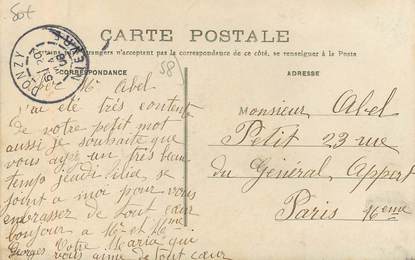 50+
CARTE POSTALE
Certains pays étrangers n'acceptant pas la correspondance de ce côté, se renseigner à la Poste
CORRESPONDANCE
ADRESSE
58
DONZY
NIÈVRE
Mr Abel
j'ai ete très contente
de votre petit mot
aussi je souhaite que
vous ayez un très beau
temps jeudi
joint a moi pour vous
embrassez de tout cœur
bonjour a Mr et Mme
Georges. Votre Maria qui
vous aime de tout cœur
Monsieur Abel
Petit 23 rue
du Général Appert
Paris 16eme